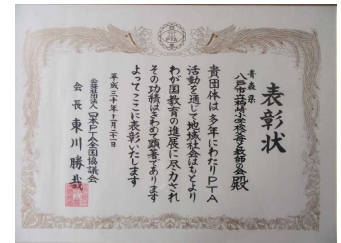 表彰状
青森県
八戸市立 小学校 の会 殿
貴団体は多年にわたりPTA
活動を通じて地域社会はもとより
わが国教育の進展に尽力され
その功績はきわめて顕著であります
よってここに表彰いたします
平成三十年十一月二十一日
公益社団法人 日本PTA全国協議会
会長 東川勝哉
PTA